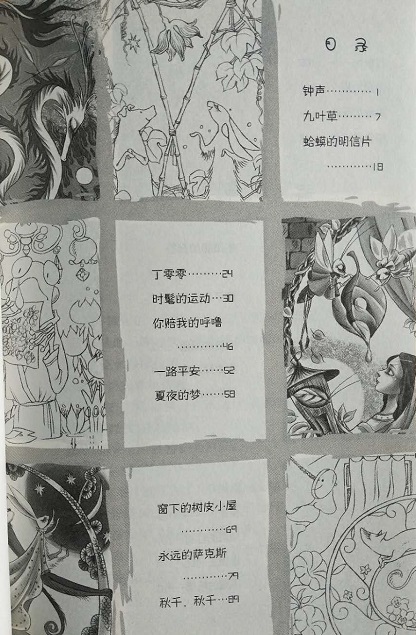 目录
钟声…………1
九叶草………7
蛤蟆的明信片
…………18
丁零零………24
时髦的运动…30
你赔我的呼噜
…………46
一路平安……52
夏夜的梦……58
窗下的树皮小屋
…………69
永远的萨克斯
…………79
秋千、秋千…89